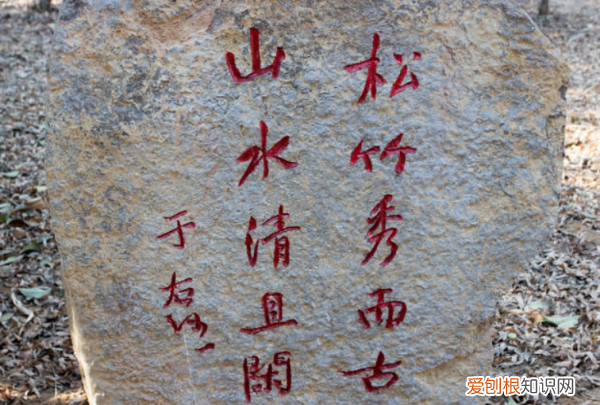 松竹秀而古
山水清且閑
于右任
爱刨根知识网